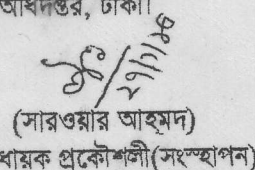 অধিদপ্তর, ঢাকা।
(সারওয়ার আহমদ)
ধায়ক প্রকৌশলী(সংস্থাপন)